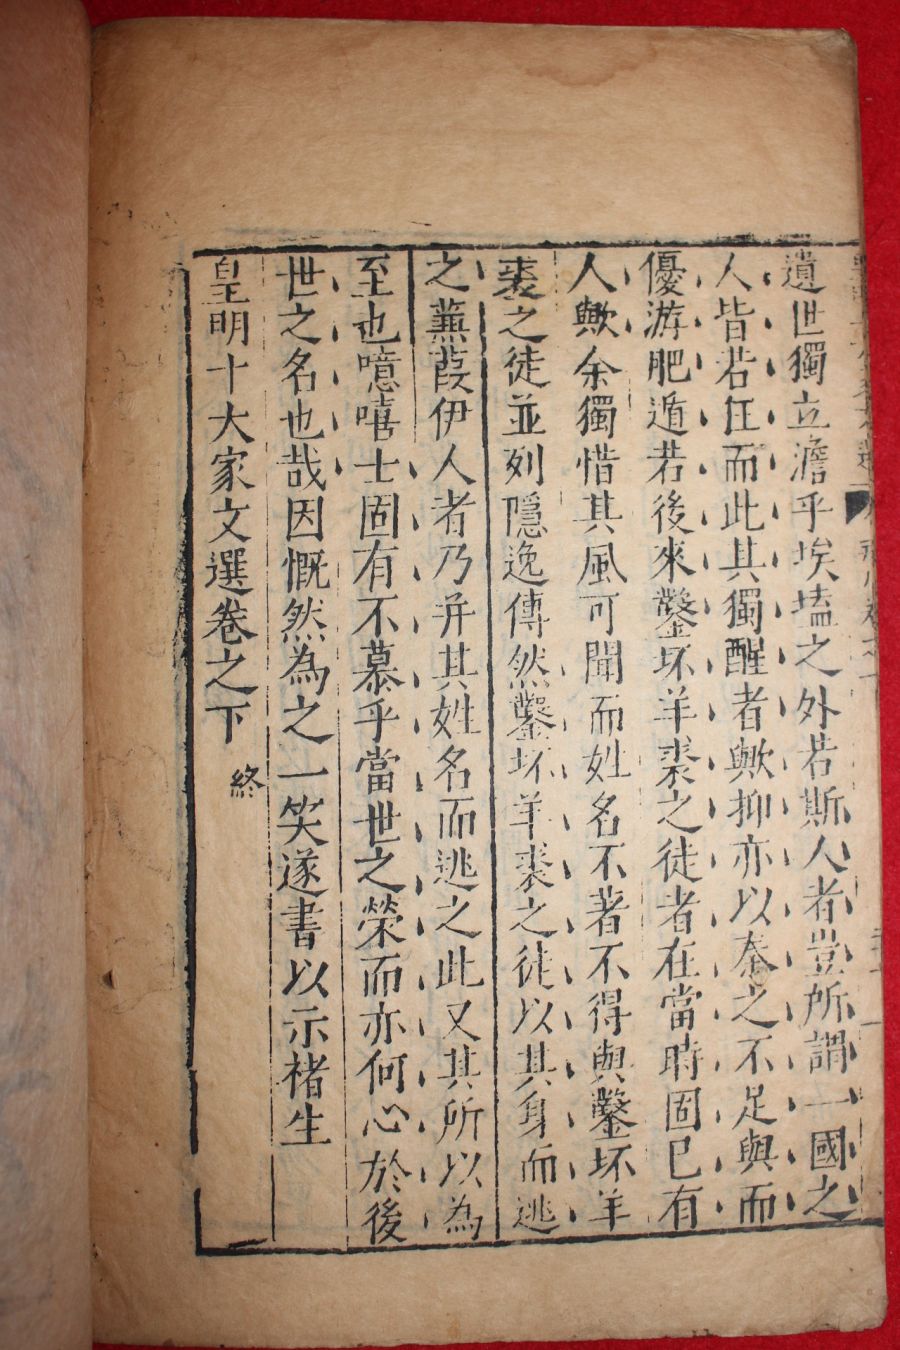 遺世獨立澹乎埃壒之外若斯人者豈所謂一國之
人皆若狂而此其獨醒者歟抑亦以秦之不足與而
優游肥遁若後來鑿坏羊裘之徒者在當時固已有
人歟余獨惜其風可聞而姓名不著不得與鑿坏羊
裘之徒並列隱逸傳然鑿坏羊裘之徒以其身而逃
之蒹葭伊人者乃并其姓名而逃之此又其所以為
至也噫嘻士固有不慕乎當世之榮而亦何心於後
世之名也哉因慨然為之一笑遂書以示褚生
皇明十大家文選卷之下 終